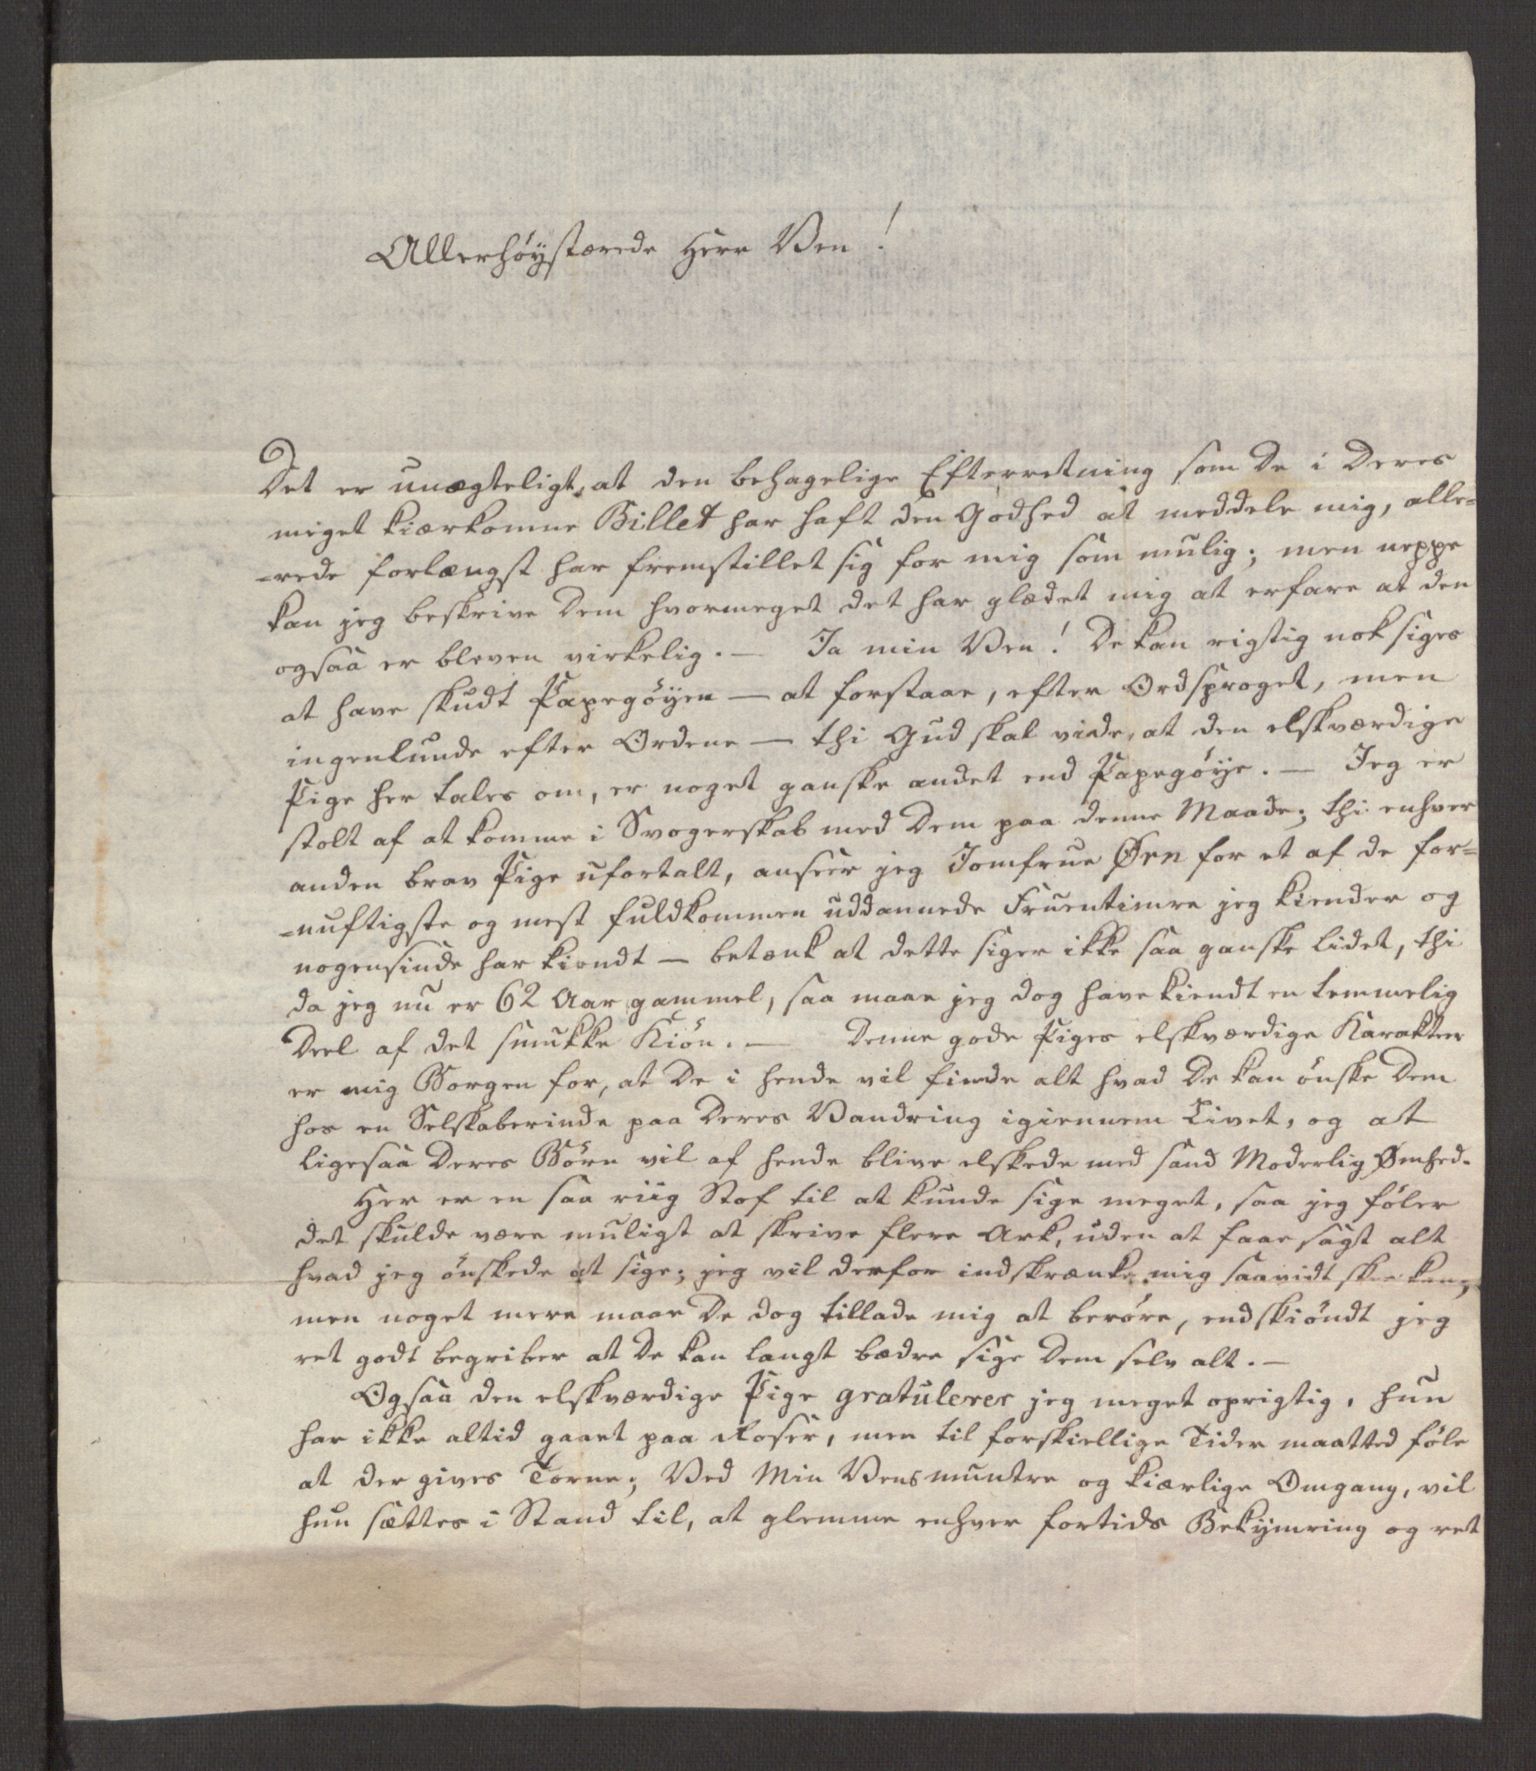 Allerhöystærede Herr Ven!
Det er unægteligt, at den behagelige Efterretning som De i Deres
meget kiærkomne Billet har haft den Godhed at meddele mig, alle-
-rede forlængst har fremstillet sig for mig som mulig; men neppe
kan jeg beskrive Dem hvormeget det har glædet mig at erfare at den
ogsaa er bleven virkelig. — Ja min Ven! De kan rigtig nok siges
at have skudt Papegöyen — at forstaae, efter Ordsproget, men
ingenlunde efter Ordene — thi Gud skal vide, at den elskværdige
Pige her tales om, er noget ganske andet end Papegöye. — Jeg er
stolt af at komme i Svogerskab med Dem paa denne Maade; thi enhver
anden brav Pige ufortalt, anseer jeg Jomfrue Ørn for et af de for-
-nuftigste og mest fuldkommen uddannede Fruentimre jeg kiender og
nogensinde har kiendt — betænk at dette siger ikke saa ganske lidet, thi
da jeg nu er 62 Aar gammel, saa maae jeg dog have kiendt en temmelig
Deel af det smukke Kiön. — Denne gode Piges elskværdige Karakteer
er mig Borgen for, at De i hende vil finde alt hvad De kan önske Dem
hos en Selskaberinde paa Deres Vandring igiennem Livet, og at
ligesaa Deres Börn vil af hende blive elskede med sand Moderlig Ømhed.
Her er en saa riig Stof til at kunde sige meget, saa jeg föler
det skulde være muligt at skrive flere Ark, uden at faae sagt alt
hvad jeg önskede at sige; jeg vil derfor indskrænke mig saavidt skee kan,
men noget mere maae De dog tillade mig at beröre, endskiöndt jeg
ret godt begriber at De kan langt bædre sige Dem selv alt. —
Ogsaa den elskværdige Pige gratulerer jeg meget oprigtig, hun
har ikke altid gaaet paa Roser, men til forskiellige Tider maatted föle
at der gives Torne; Ved Min Vens muntre og kiærlige Omgang, vil
hun sættes i Stand til, at glemme enhver fortids Bekymring og ret